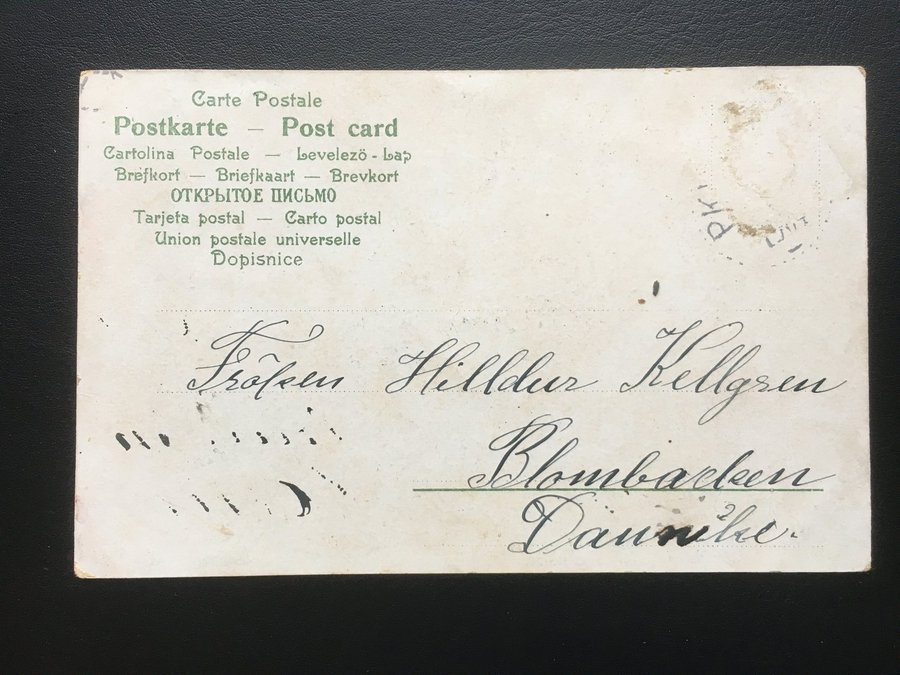 Carte Postale
Postkarte — Post card
Cartolina Postale — Levelező-Lap
Brefkort — Briefkaart — Brevkort
ОТКРЫТОЕ ПИСЬМО
Tarjeta postal — Carto postal
Union postale universelle
Dopisnice
PK
Fröken Hilldur Kellgren
Blombacken
Dannike.